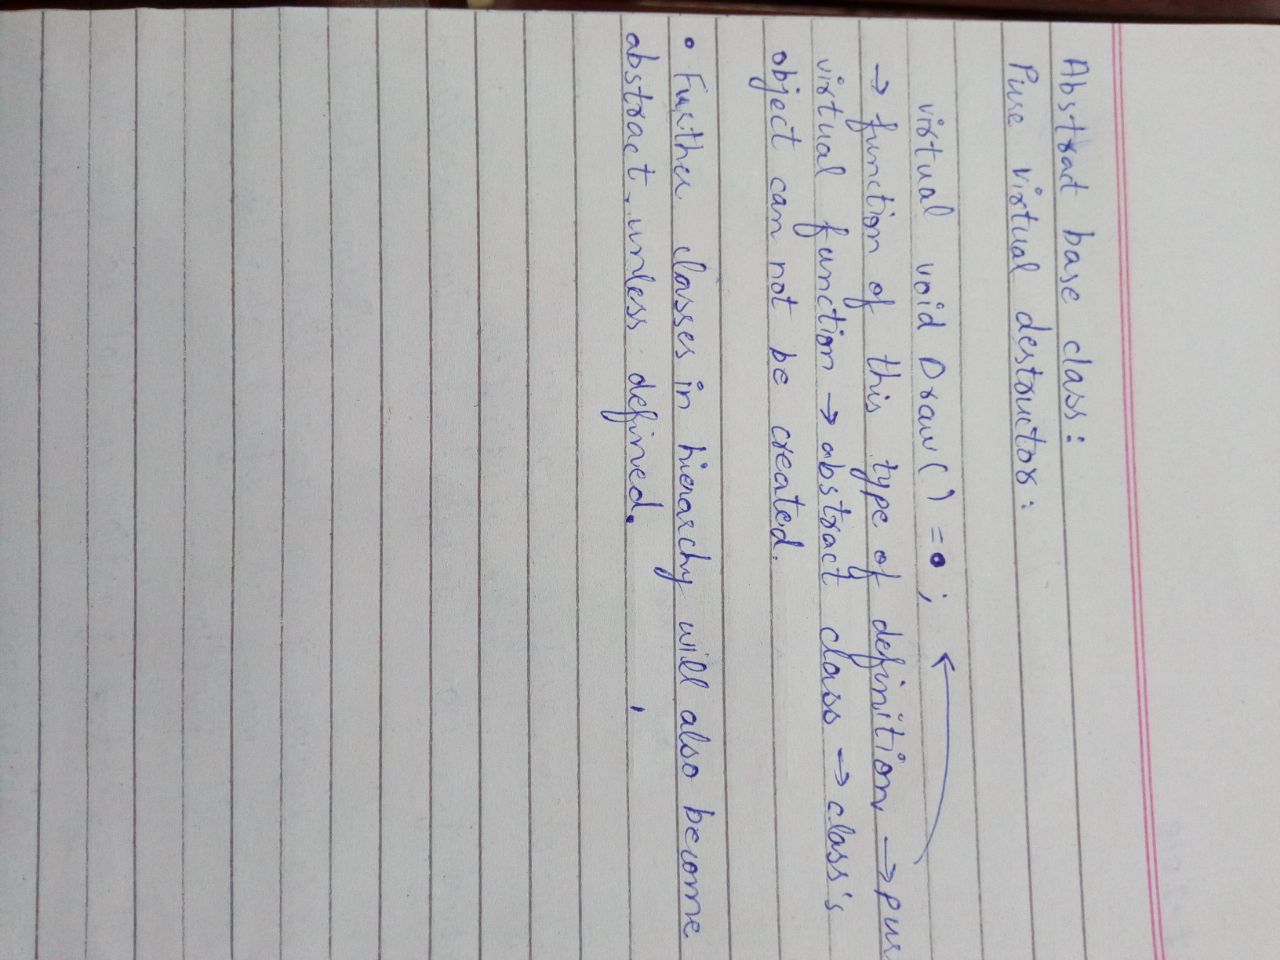 Abstract base class:
Pure virtual destructor:
virtual void Draw() = 0;
→ function of this type of definition → pure
virtual function → abstract class → class's
object can not be created.
• Further classes in hierarchy will also become
abstract, unless defined.